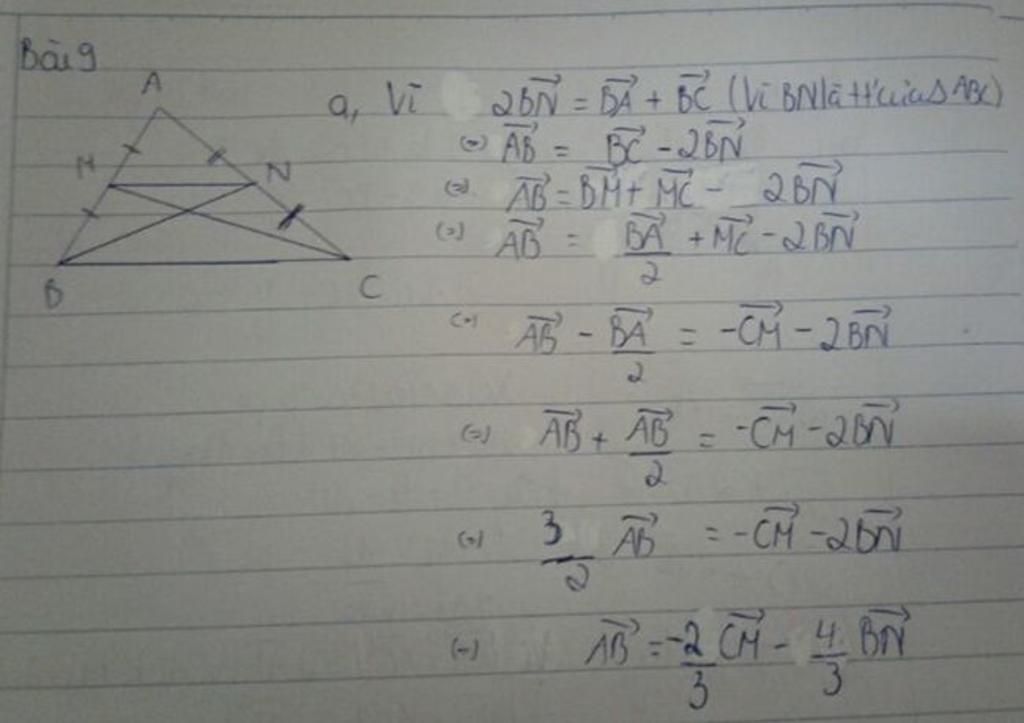 Bài 9
A
M
N
B
C
a, Vì 2BN⃗ = BA⃗ + BC⃗ (Vì BN là tt' của Δ ABC)
(=) AB⃗ = BC⃗ - 2BN⃗
(=) AB⃗ = BM⃗ + MC⃗ - 2BN⃗
(=) AB⃗ = BA⃗/2 + MC⃗ - 2BN⃗
(=) AB⃗ - BA⃗/2 = -CM⃗ - 2BN⃗
(=) AB⃗ + AB⃗/2 = -CM⃗ - 2BN⃗
(=) 3/2 AB⃗ = -CM⃗ - 2BN⃗
(=) AB⃗ = -2/3 CM⃗ - 4/3 BN⃗